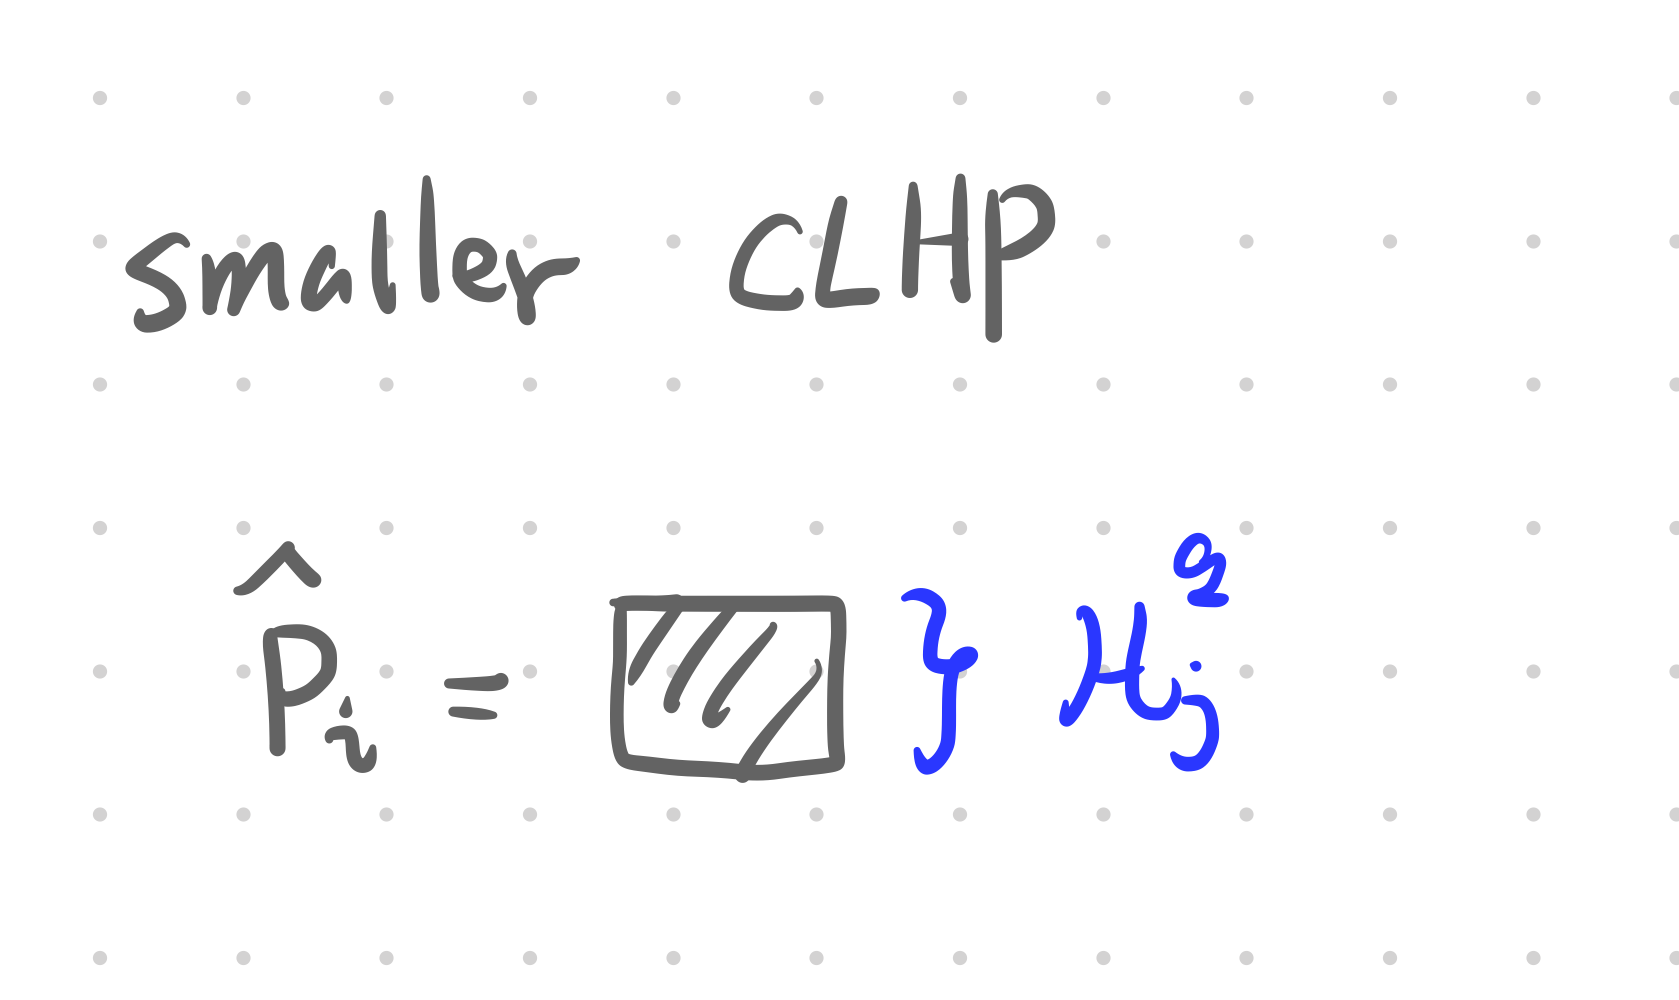 smaller CLHP
P̂ᵢ = } Hⱼ^q